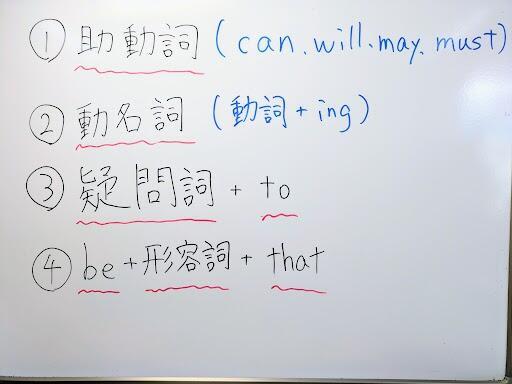 ① 助動詞 (can.will.may.must)
② 動名詞 (動詞+ing)
③ 疑問詞 + to
④ be+形容詞+that